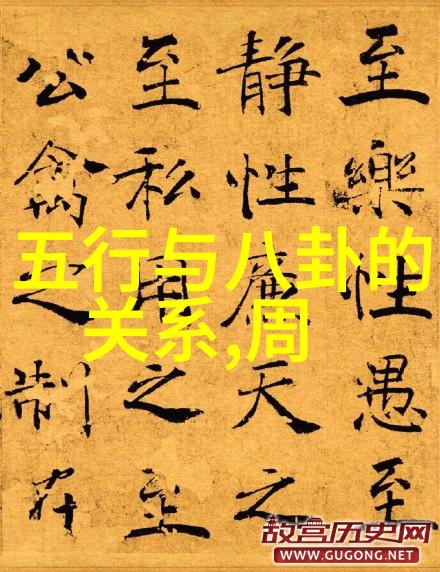 至樂性愚至
靜性廉天之
至私用之至
公禽之制在
五行与八卦的
关系,周
故宫历史网
WWW.GUGONG.NET